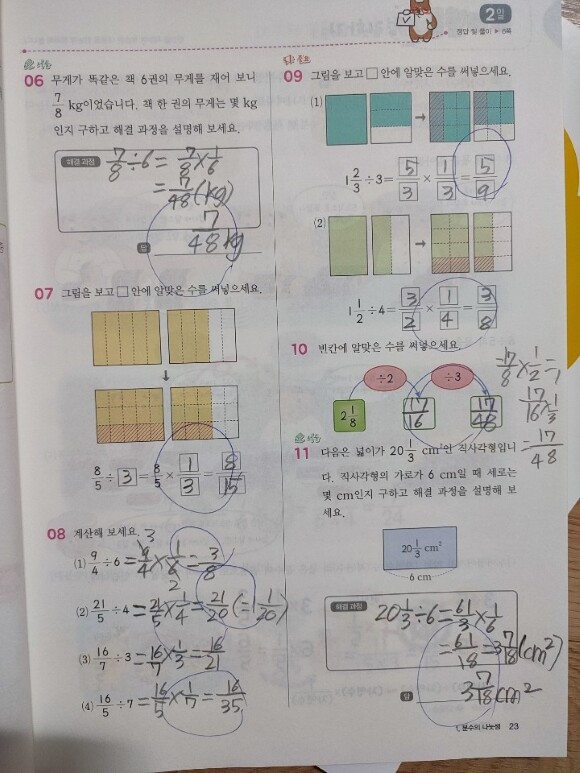 2일
정답 및 풀이 ▸ 8쪽
06 무게가 똑같은 책 6권의 무게를 재어 보니
7/8 kg이었습니다. 책 한 권의 무게는 몇 kg
인지 구하고 해결 과정을 설명해 보세요.
해결 과정 7/8÷6=7/8×1/6
=7/48(kg)
답 7/48kg
07 그림을 보고 □ 안에 알맞은 수를 써넣으세요.
8/5÷3=8/5×1/3=8/15
08 계산해 보세요.
(1) 9/4÷6=9/4×1/6=3/8
3
2
(2) 21/5÷4=21/5×1/4=21/20(=1 1/20)
(3) 16/7÷3=16/7×1/3=16/21
(4) 16/5÷7=16/5×1/7=16/35
09 그림을 보고 □ 안에 알맞은 수를 써넣으세요.
(1)
1 2/3÷3=5/3×1/3=5/9
(2)
1 1/2÷4=3/2×1/4=3/8
10 빈칸에 알맞은 수를 써넣으세요.
÷2 ÷3
2 1/8 17/16 17/48
17/8×1/2=
17/16×1/3
=17/48
11 다음은 넓이가 20 1/3 cm²인 직사각형입니
다. 직사각형의 가로가 6 cm일 때 세로는
몇 cm인지 구하고 해결 과정을 설명해 보
세요.
20 1/3 cm²
6 cm
해결 과정 20 1/3÷6=61/3×1/6
=61/18=3 7/18(cm²)
답 3 7/18cm²
1. 분수의 나눗셈 23